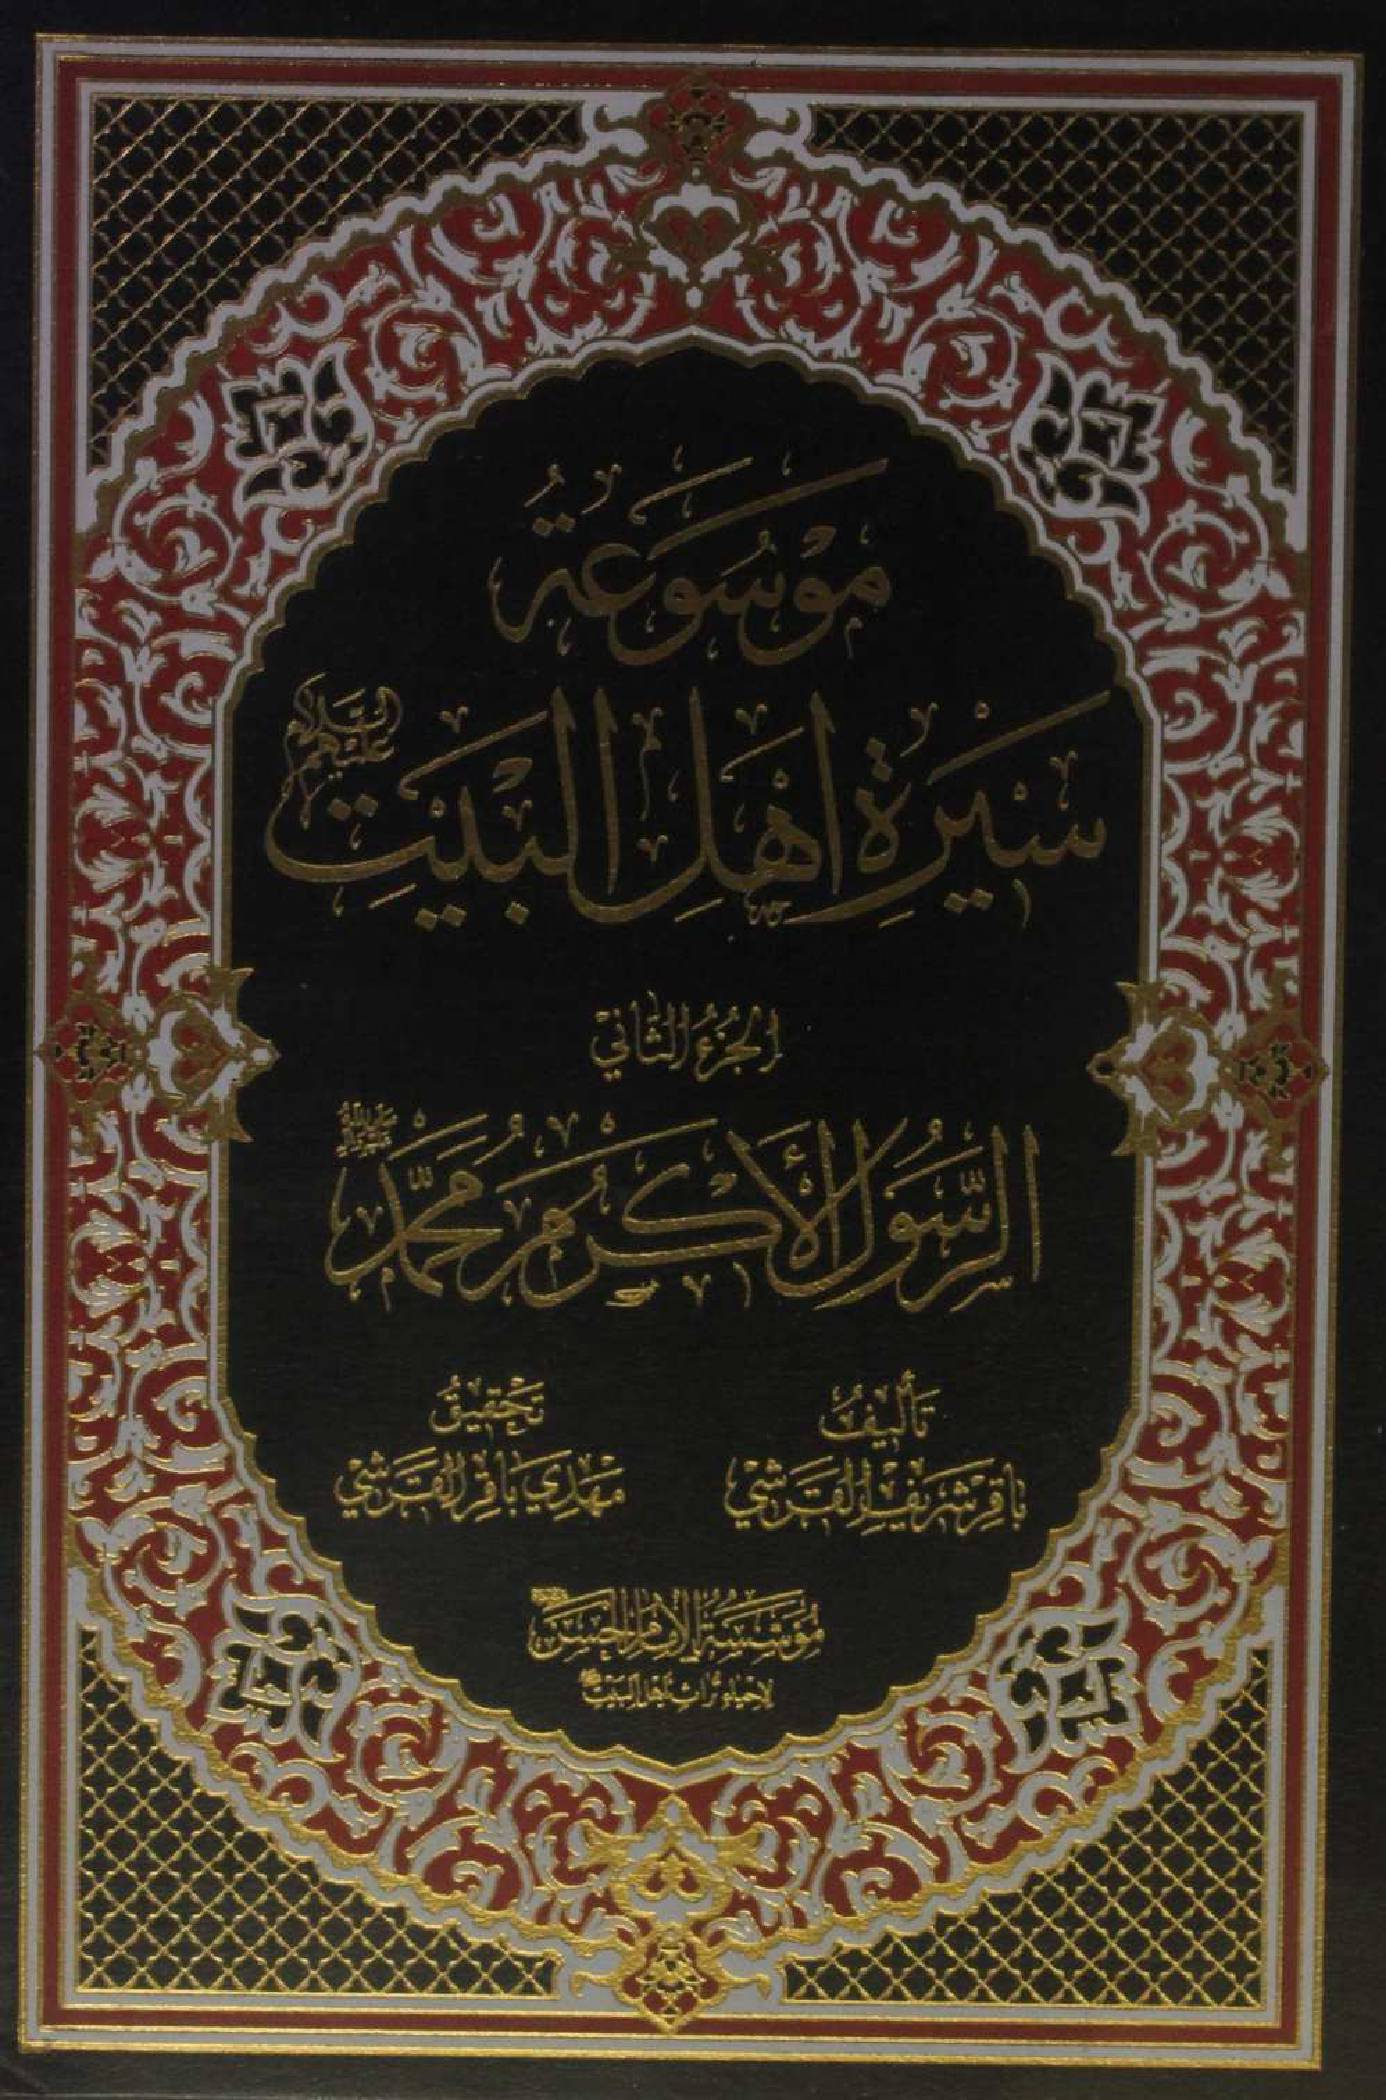 مَوْسُوعَةُ
سِيرَةِ أَهْلِ الْبَيْتِ عَلَيْهِمُ السَّلَام
الجُزءُ الثَّانِي
الرَّسُولُ الأَكْرَمُ مُحَمَّد
تَأليفُ
بَاقِر شَرِيف القَرَشِي
تَحقِيقُ
مَهْدِي بَاقِر القَرَشِي
مُؤَسَّسَةُ الإمَامِ الحَسَن
لإحياء تراث أهل البيت